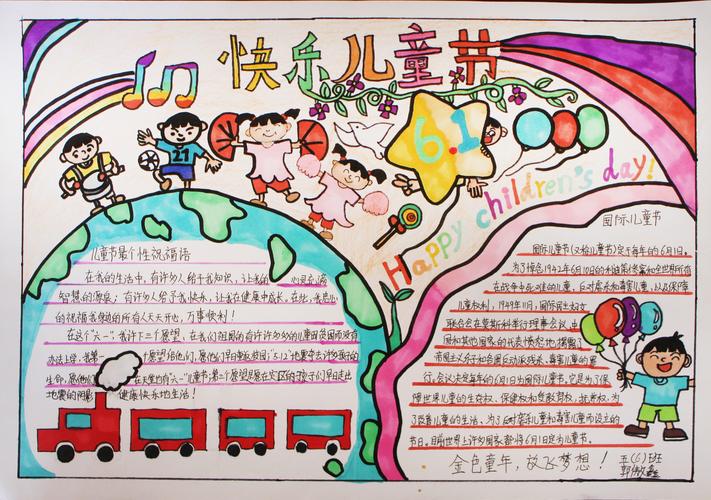 快乐儿童节
6.1
21
Happy children's day!
儿童节最个性祝福语
在我的生活中，有许多人给予我知识，让我的心灵充满
智慧的源泉；有许多人给予我快乐，让我在健康中成长，在此，我衷心
的祝福我身边的所有人天天开心，万事快利！
在这个"六一"，我许下二个愿望，在我们祖国的有许许多多的儿童因贫困而没有
办法上学，我第一个愿望给他们，愿他们早日重返校园；"5.12"地震夺去许多孩子的
生命，愿他们在天堂也有"六一"儿童节；第二个愿望是愿在灾区的孩子们早日走出
地震的阴影，健康快乐地生活！
国际儿童节
国际儿童节(又给儿童节)定于每年的6月1日。
为了悼念1942年6月10日的利迪策惨案和全世界所有
在战争中死难的儿童，反对虐杀和毒害儿童，以及保障
儿童权利，1949年11月，国际民主妇女
联合会在莫斯科举行理事会议，中
国和其他国家的代表愤怒地揭露了
帝国主义分子和各国反动派残杀、毒害儿童的罪
行。会议决定每年的6月1日为国际儿童节。它是为了保
障世界儿童的生存权、保健权和受教育权，抚养权，为
了改善儿童的生活，为了反对虐杀儿童和毒害儿童而设立的
节日。目前世界上许多国家都将6月1日定为儿童节。
金色童年，放飞梦想！
五(6)班